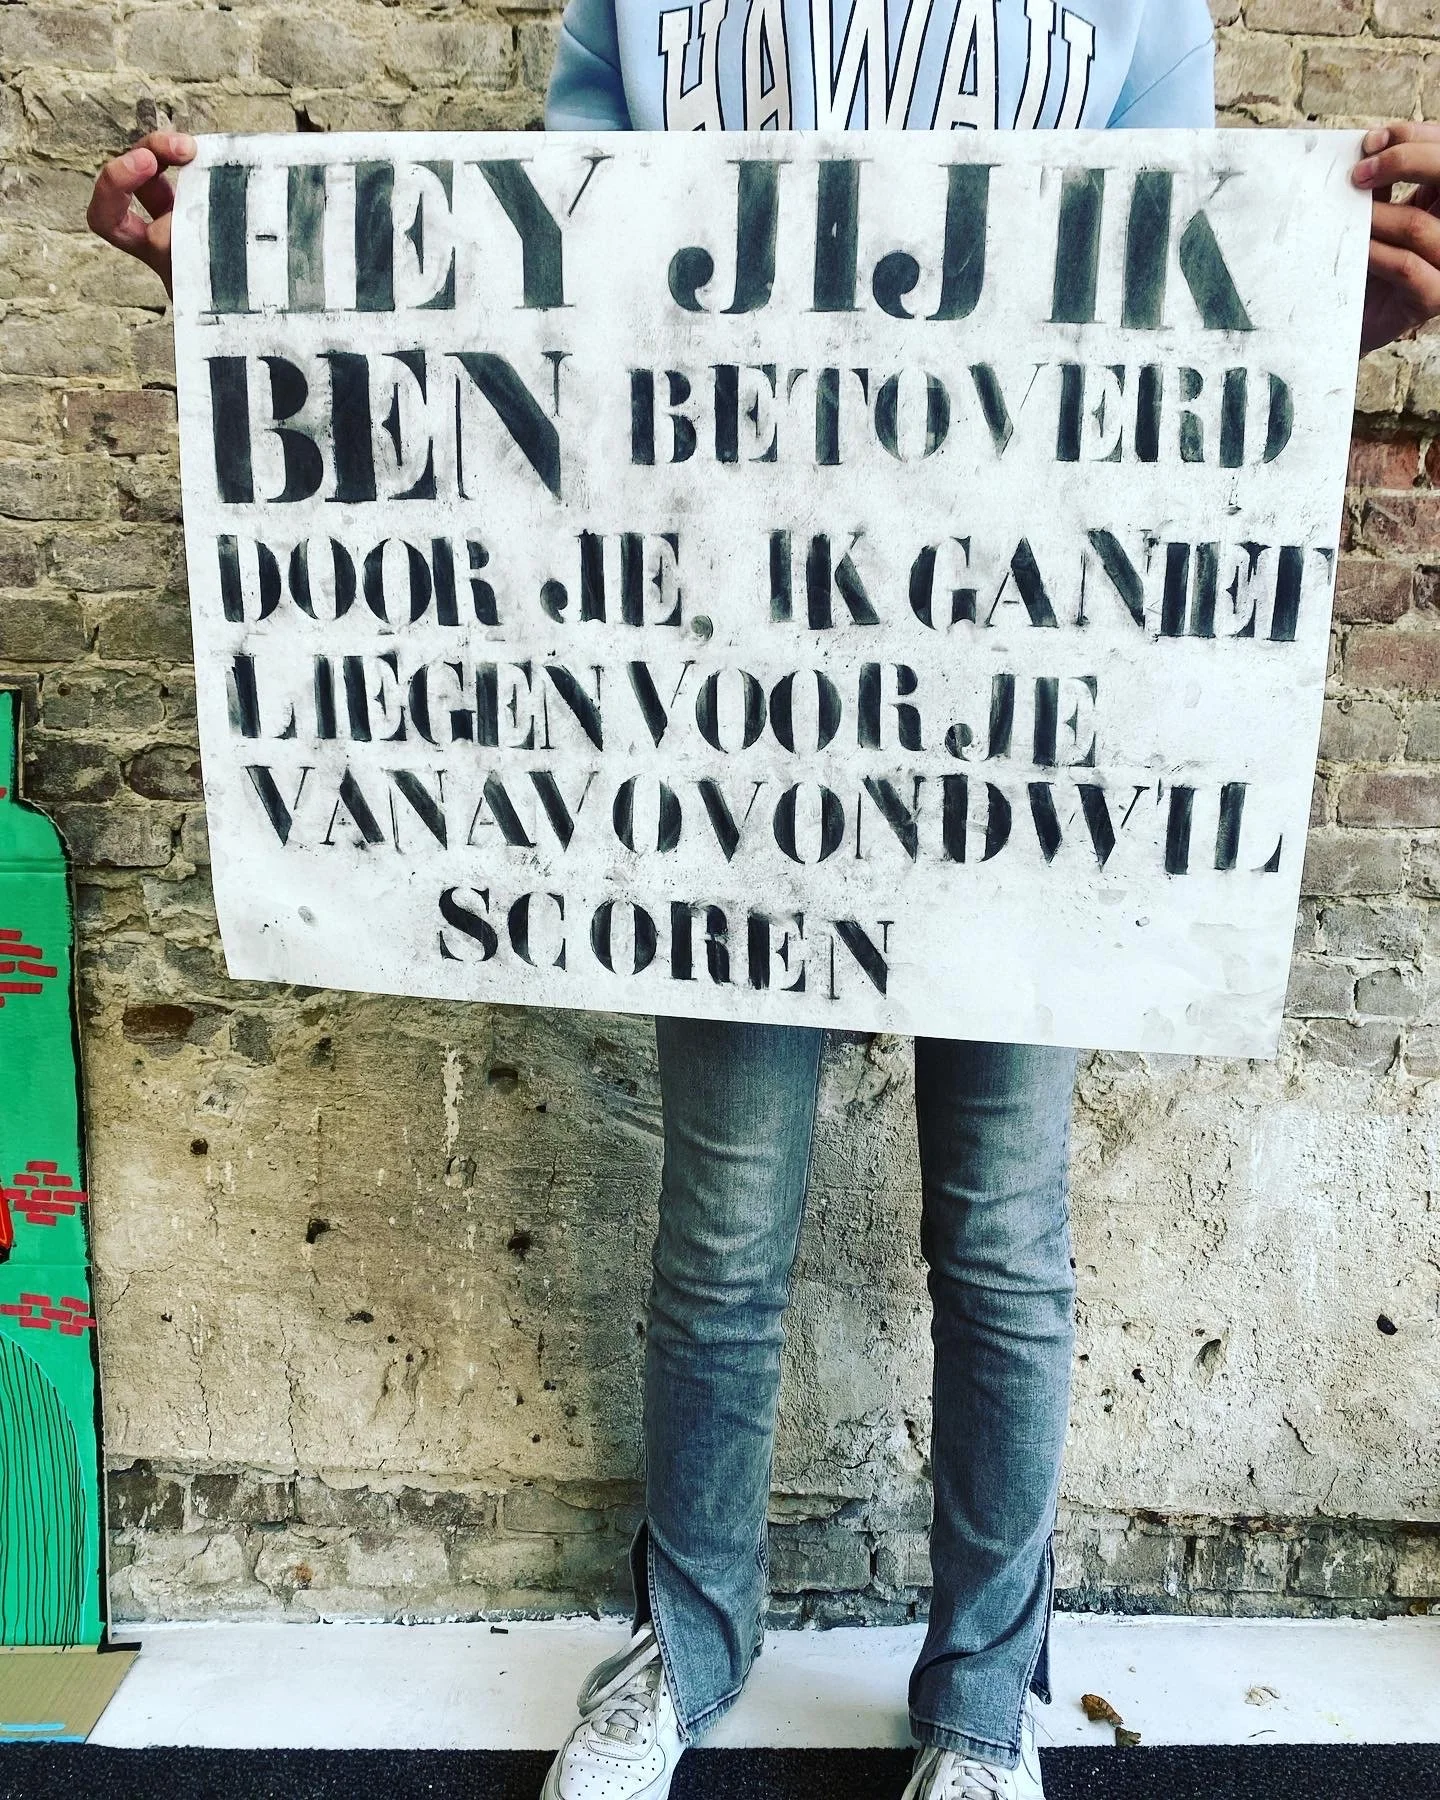 HAWAII
HEY JIJ IK
BEN BETOVERD
DOOR JE, IK GA NIET
LIEGEN VOOR JE
VANAVOVOND W'IL
SCOREN